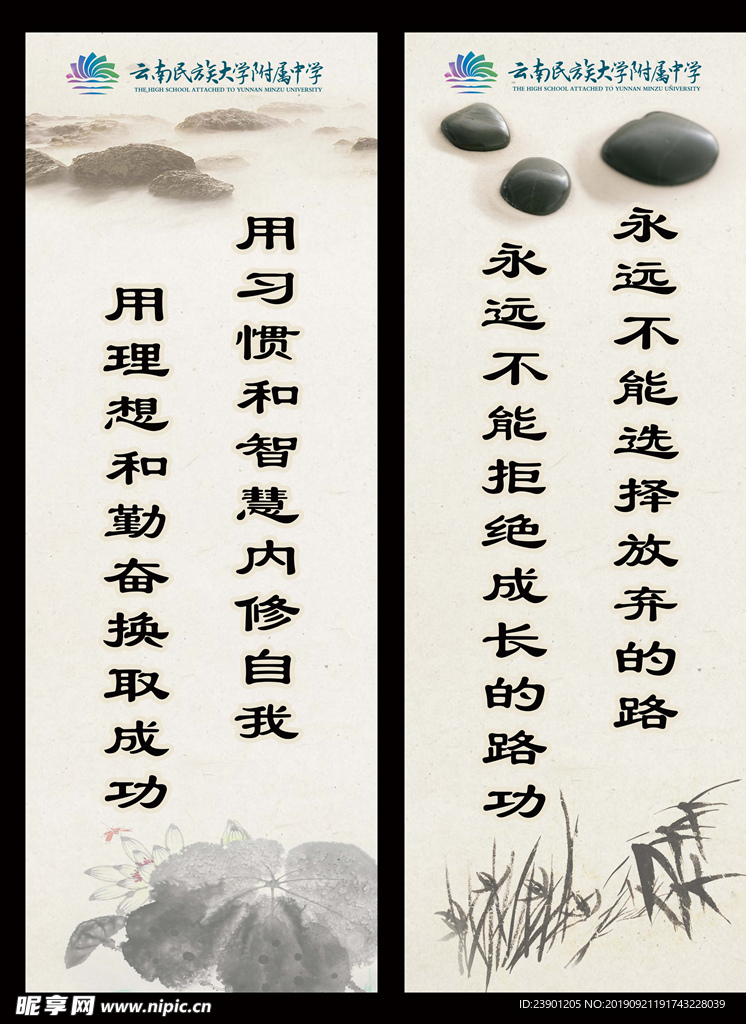 云南民族大学附属中学
THE HIGH SCHOOL ATTACHED TO YUNNAN MINZU UNIVERSITY
用习惯和智慧内修自我
用理想和勤奋换取成功
云南民族大学附属中学
THE HIGH SCHOOL ATTACHED TO YUNNAN MINZU UNIVERSITY
永远不能选择放弃的路
永远不能拒绝成长的路功
昵享网 www.nipic.cn
ID:23901205 NO:20190921191743228039